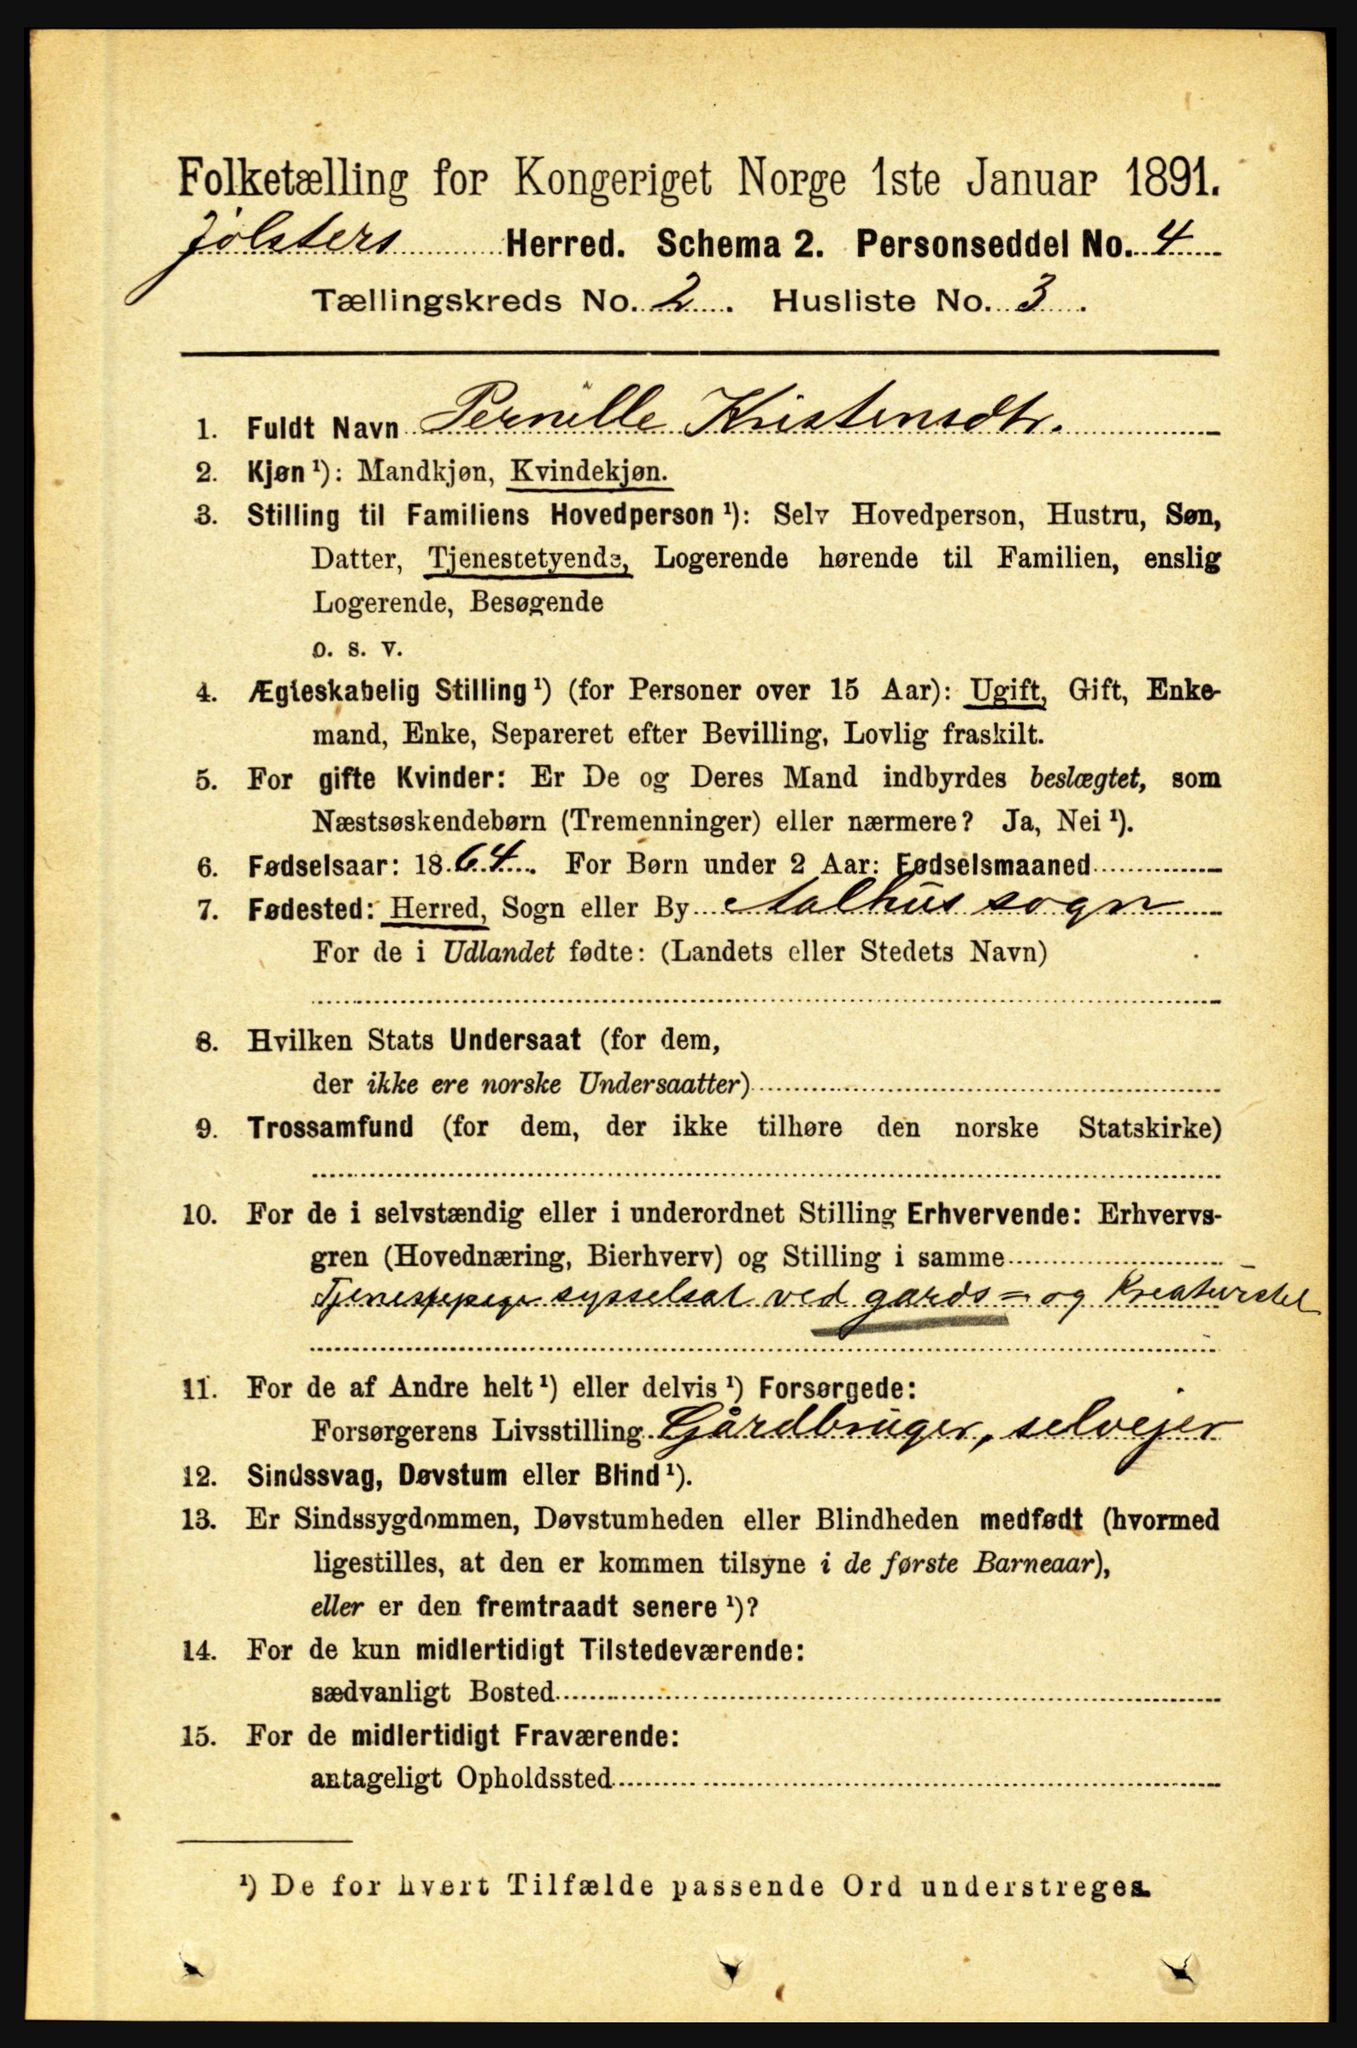 Folketælling for Kongeriget Norge 1ste Januar 1891.
Jølsters Herred. Schema 2. Personseddel No. 4
Tællingskreds No. 2. Husliste No. 3.
1. Fuldt Navn Pernille Kristensdtr.
2. Kjøn¹): Mandkjøn, Kvindekjøn.
3. Stilling til Familiens Hovedperson¹): Selv Hovedperson, Hustru, Søn,
Datter, Tjenestetyende, Logerende hørende til Familien, enslig
Logerende, Besøgende
o. s. v.
4. Ægteskabelig Stilling¹) (for Personer over 15 Aar): Ugift, Gift, Enke-
mand, Enke, Separeret efter Bevilling, Lovlig fraskilt.
5. For gifte Kvinder: Er De og Deres Mand indbyrdes beslægtet, som
Næstsøskendebørn (Tremenninger) eller nærmere? Ja, Nei¹).
6. Fødselsaar: 1864. For Børn under 2 Aar: Fødselsmaaned
7. Fødested: Herred, Sogn eller By Aalhus sogn
For de i Udlandet fødte: (Landets eller Stedets Navn)
8. Hvilken Stats Undersaat (for dem,
der ikke ere norske Undersaatter)
9. Trossamfund (for dem, der ikke tilhøre den norske Statskirke)
10. For de i selvstændig eller i underordnet Stilling Erhvervende: Erhvervs-
gren (Hovednæring, Bierhverv) og Stilling i samme
Tjenestepige sysselsat ved gards= og Kreaturstel
11. For de af Andre helt¹) eller delvis¹) Forsørgede:
Forsørgerens Livsstilling Gårdbruger, selvejer
12. Sindssvag, Døvstum eller Blind¹).
13. Er Sindssygdommen, Døvstumheden eller Blindheden medfødt (hvormed
ligestilles, at den er kommen tilsyne i de første Barneaar),
eller er den fremtraadt senere¹)?
14. For de kun midlertidigt Tilstedeværende:
sædvanligt Bosted
15. For de midlertidigt Fraværende:
antageligt Opholdssted
¹) De for hvert Tilfælde passende Ord understreges.